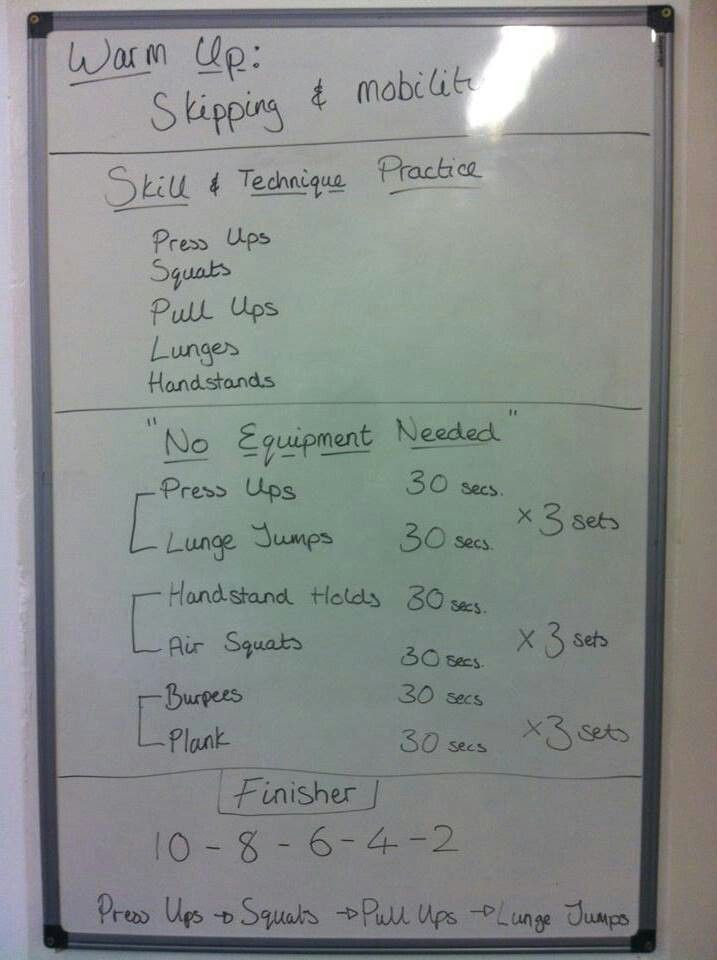 Warm Up:
Skipping & mobility
Skill & Technique Practice
Press Ups
Squats
Pull Ups
Lunges
Handstands
"No Equipment Needed"
Press Ups 30 secs.
Lunge Jumps 30 secs. x 3 sets
Handstand Holds 30 secs.
Air Squats 30 secs. x 3 sets
Burpees 30 secs
Plank 30 secs x 3 sets
Finisher
10 - 8 - 6 - 4 - 2
Press Ups → Squats → Pull Ups → Lunge Jumps